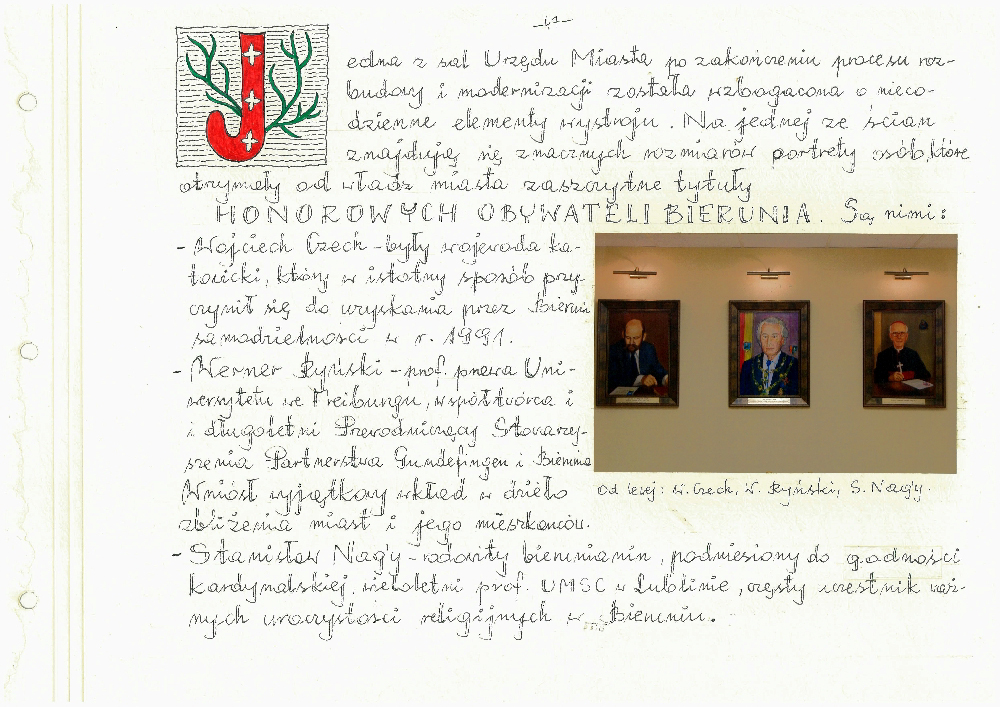 Jedna z sal Urzędu Miasta po zakończeniu procesu roz-
budowy i modernizacji została wzbogacona o nieco-
dzienne elementy wystroju. Na jednej ze ścian
znajdują się znacznych rozmiarów portrety osób, które
otrzymały od władz miasta zaszczytne tytuły
HONOROWYCH OBYWATELI BIERUNIA. Są nimi:
- Wojciech Czech - były wojewoda ka-
towicki, który w istotny sposób przy-
czynił się do uzyskania przez Bieruń
samodzielności w r. 1991.
- Werner Ryński - prof. prawa Uni-
wersytetu we Freiburgu, współtwórca i
i długoletni Przewodniczący Stowarzy-
szenia Partnerstwa Gundefingen i Bierunia
Wniósł wyjątkowy wkład w dzieło
zbliżenia miast i jego mieszkańców.
od lewej: W. Czech, W. Ryński, S. Nagy.
- Stanisław Nagy - rodowity bierunianin, podniesiony do godności
kardynalskiej, wieloletni prof. UMSC w Lublinie, częsty uczestnik waż-
nych uroczystości religijnych w Bieruniu.